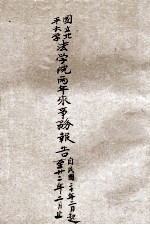 國立北
平大学
法学院兩年來事務報告
自民國二十年二月起
至廿二年二月止